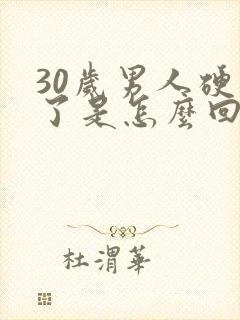 30歲男人硬
了是怎麼回
杜渭華